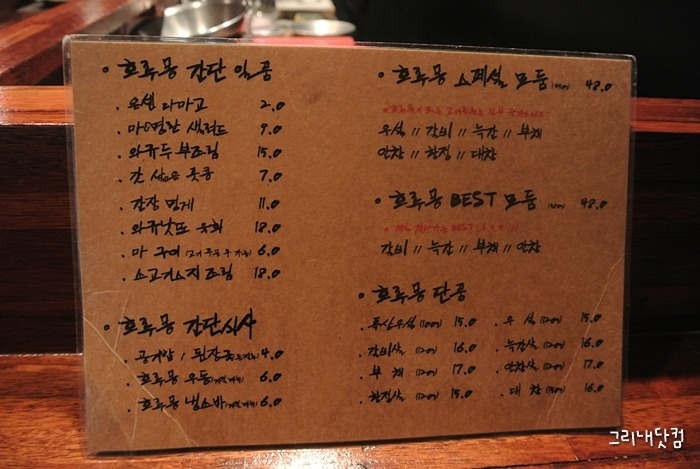 · 호루몽 간단 일품
· 온센 다마고 2.0
· 마&명란 샐러드 9.0
· 와규두부조림 15.0
· 갓 삶은 풋콩 7.0
· 간장 멍게 11.0
· 와규낫또 육회 18.0
· 마 구이 6.0
· 소고기스지 조림 18.0
· 호루몽 간단식사
· 공기밥, 된장국 4.0
· 호루몽 우동 6.0
· 호루몽 냉소바 6.0
· 호루몽 스페셜 모둠 48.0
우설 // 갈비 // 늑간 // 부채
안창 // 항정 // 대창
· 호루몽 BEST 모둠 48.0
갈비 // 늑간 // 부채 // 안창
· 호루몽 단품
· 특산우설 (100g) 15.0
· 갈비살 (120g) 16.0
· 부채 (120g) 17.0
· 항정살 (120g) 15.0
· 우설 (120g) 15.0
· 늑간살 (120g) 16.0
· 안창살 (120g) 17.0
· 대창 (150g) 16.0
그리내닷컴